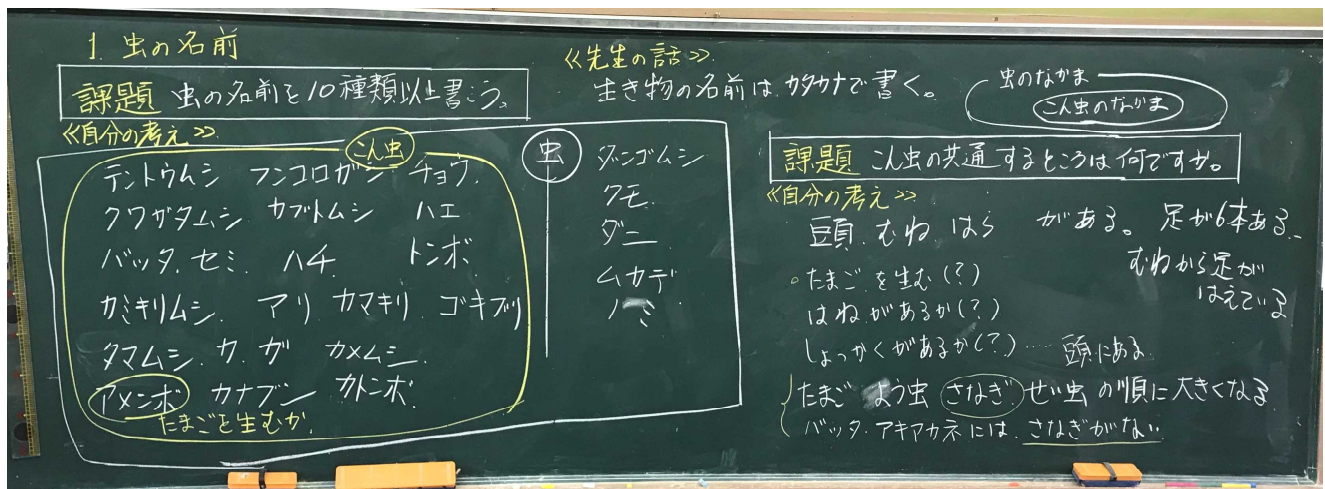 1. 虫の名前
課題 虫の名前を10種類以上書こう。
≪自分の考え≫
こん虫
テントウムシ フンコロガシ チョウ
クワガタムシ カブトムシ ハエ
バッタ セミ ハチ トンボ
カミキリムシ アリ カマキリ ゴキブリ
タマムシ カ ガ カメムシ
アメンボ カナブン カトンボ
たまごを生むか
虫
ダンゴムシ
クモ
ダニ
ムカデ
ノミ
≪先生の話≫
生き物の名前は、カタカナで書く。
虫のなかま
こん虫のなかま
課題 こん虫の共通するところは何ですか。
≪自分の考え≫
頭、むね はら がある。足が6本ある
むねから足が
はえている
。たまごを生む(?)
はねがあるか(?)
しょっかくがあるか(?)……頭にある
たまご よう虫 さなぎ せい虫の順に大きくなる
バッタ アキアカネには、さなぎがない